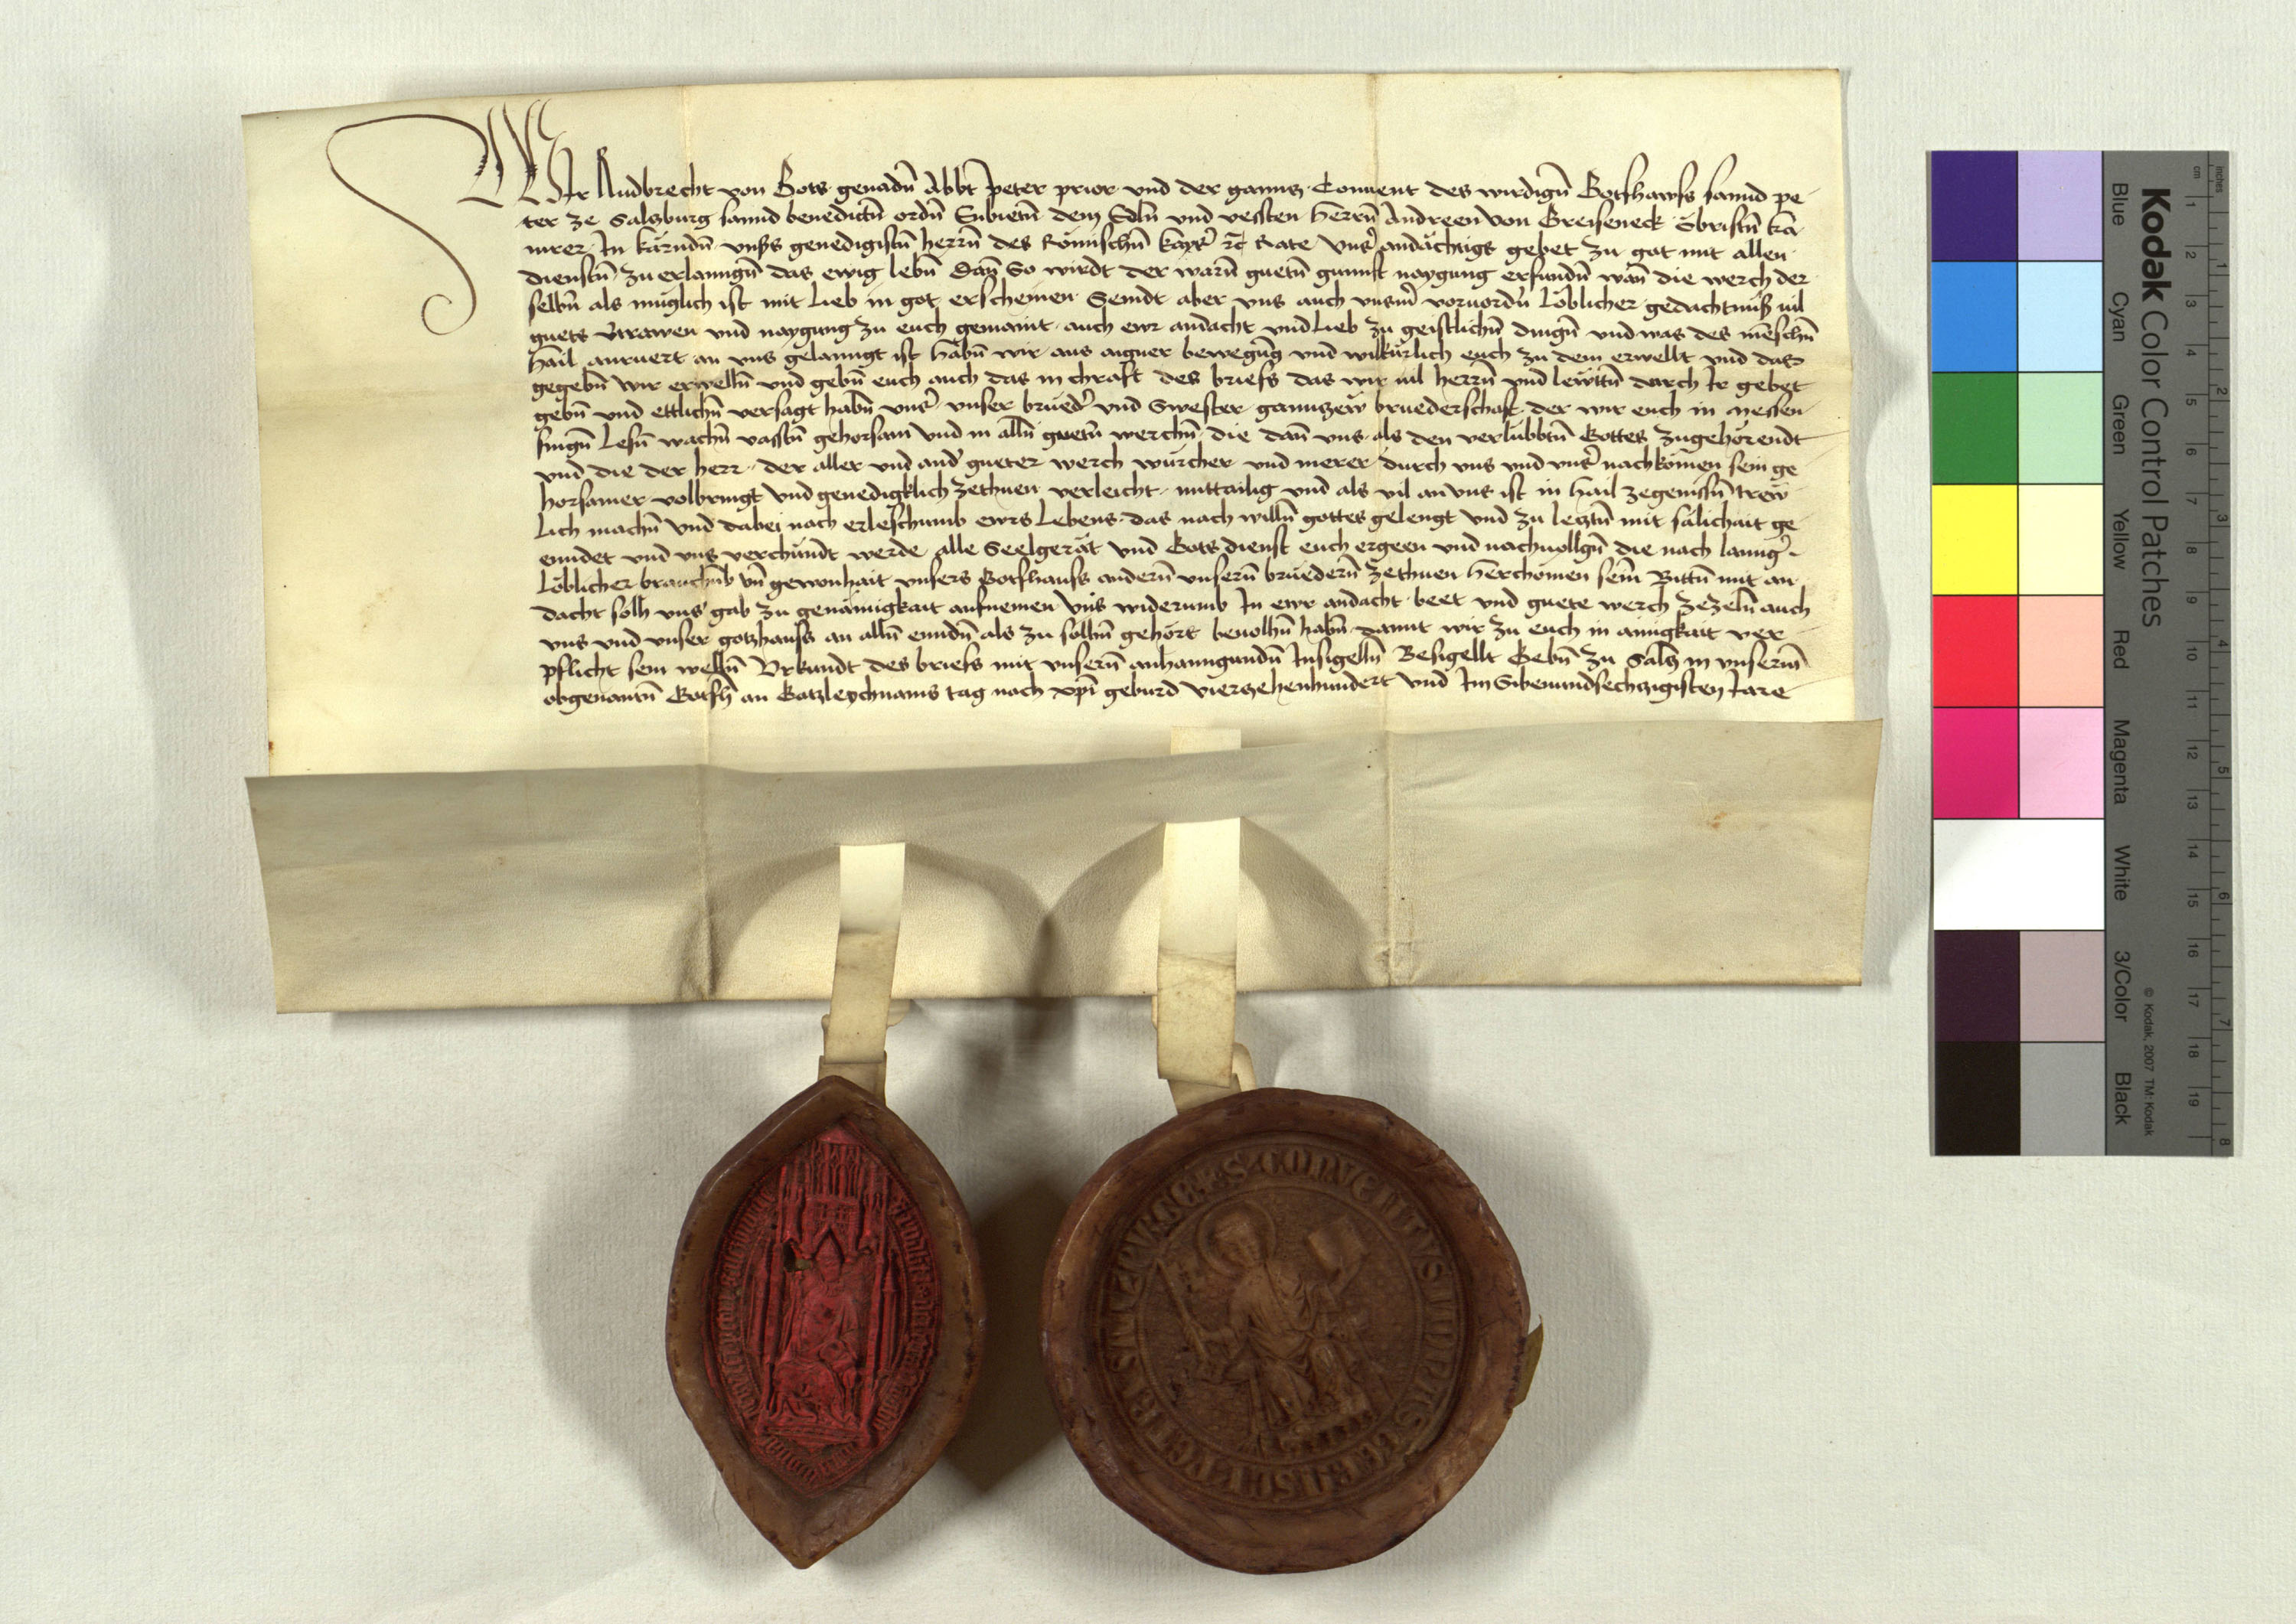 Wir Rudbrecht von Gots genadn̄ Abbt Peter prior und der gannz Convent des wirdign̄ Gotshawss sannd pe
ter ze Salzburg sannd benedictn̄ ordn̄ Enbietn̄ dem Edln̄ und vessten herrn̄ Andreen von Greiseneck Obristn̄ ka
mrer In kärndn̄ unsers genedigistn̄ herrn̄ des Römischn̄ kaysers rc Rate unser andächtigs gebet zu got mit allen
dienstn̄ zu erlanngn̄ das ewig lebn̄ Dan̄ So wirdt der warn̄ guetn̄ gunnst naygung erfundn̄ wan̄ die werch der
selbn̄ als muglich ist mit Lieb in got erscheinen Seindt aber uns auch unsern vorvordn̄ Löblicher gedachtnuß vil
guets vtrawen und naygung zu euch gemaint auch ewr andacht und Lieb zu geistlichn̄ dingn̄ und was des menschn̄
hail anruert an uns gelanngt ist habn̄ wir aus aigner bewegung und wilkurlich euch zu dem erwellt und das
gegebn̄ wir erwelln̄ und gebn̄ euch auch das in chraft des briefs das wir vil herrn̄ und lewtn̄ durch Ir gebet
gebn̄ und ettlichn̄ versagt habn̄ unser unser brueder und Swester gannzew bruederschaft der wir euch in messen
singn̄ Lesn̄ wachn̄ vasstn̄ gehorsam und in alln̄ guetn̄ werchn̄ die dan̄ uns als den verlubbtn̄ Gottes zugehörendt
und die der herr der aller und ander gueter werch würcher und merer durch uns und unser nachkomen sein ge
horsamer volbringt und genedigklich zethuen verleicht mittailig und als vil an uns ist in hail zegeniessn̄ trew
lich machn̄ und dabei nach erleschumb ewrs Lebens das nach willn̄ gottes gelengt und zu letztn̄ mit sälichait ge
enndet und uns verchundt werde alle Seelgerät und Gotsdienst euch ergeen und nachvollgn̄ die nach lannger
Löblicher brauchūb un̄ gewonhait unsers Gotshauss andern̄ unsern̄ bruedern̄ zethuen herchomen sein Bittn̄ mit an
dacht solh unser gab zu genämigkait aufnemen uns widerumb In ewr andacht beet und guete werch zezeln̄ auch
uns und unser gotzhauss an alln̄ enndn̄ als zu solhn̄ gehört bevolhn̄ habn̄ damit wir zu euch in ainigkait ver
pflicht sein welln̄ Urkundt des briefs mit unsern̄ anhanngundn̄ Insigelln̄ Besigellt Gebn̄ zu Salz in unserm
obgenantn̄ Gotsh an Gotzleychnams tag nach xpi geburd vierzehenhundert und Im Sibenundsechzigisten Jare
S CONVENTVS
Kodak Color Control Patches
© Kodak, 2007 TM: Kodak
Blue Cyan Green Yellow Red Magenta White 3/Color Black
inches 1 2 3 4 5 6 7 8
cm 1 2 3 4 5 6 7 8 9 10 11 12 13 14 15 16 17 18 19